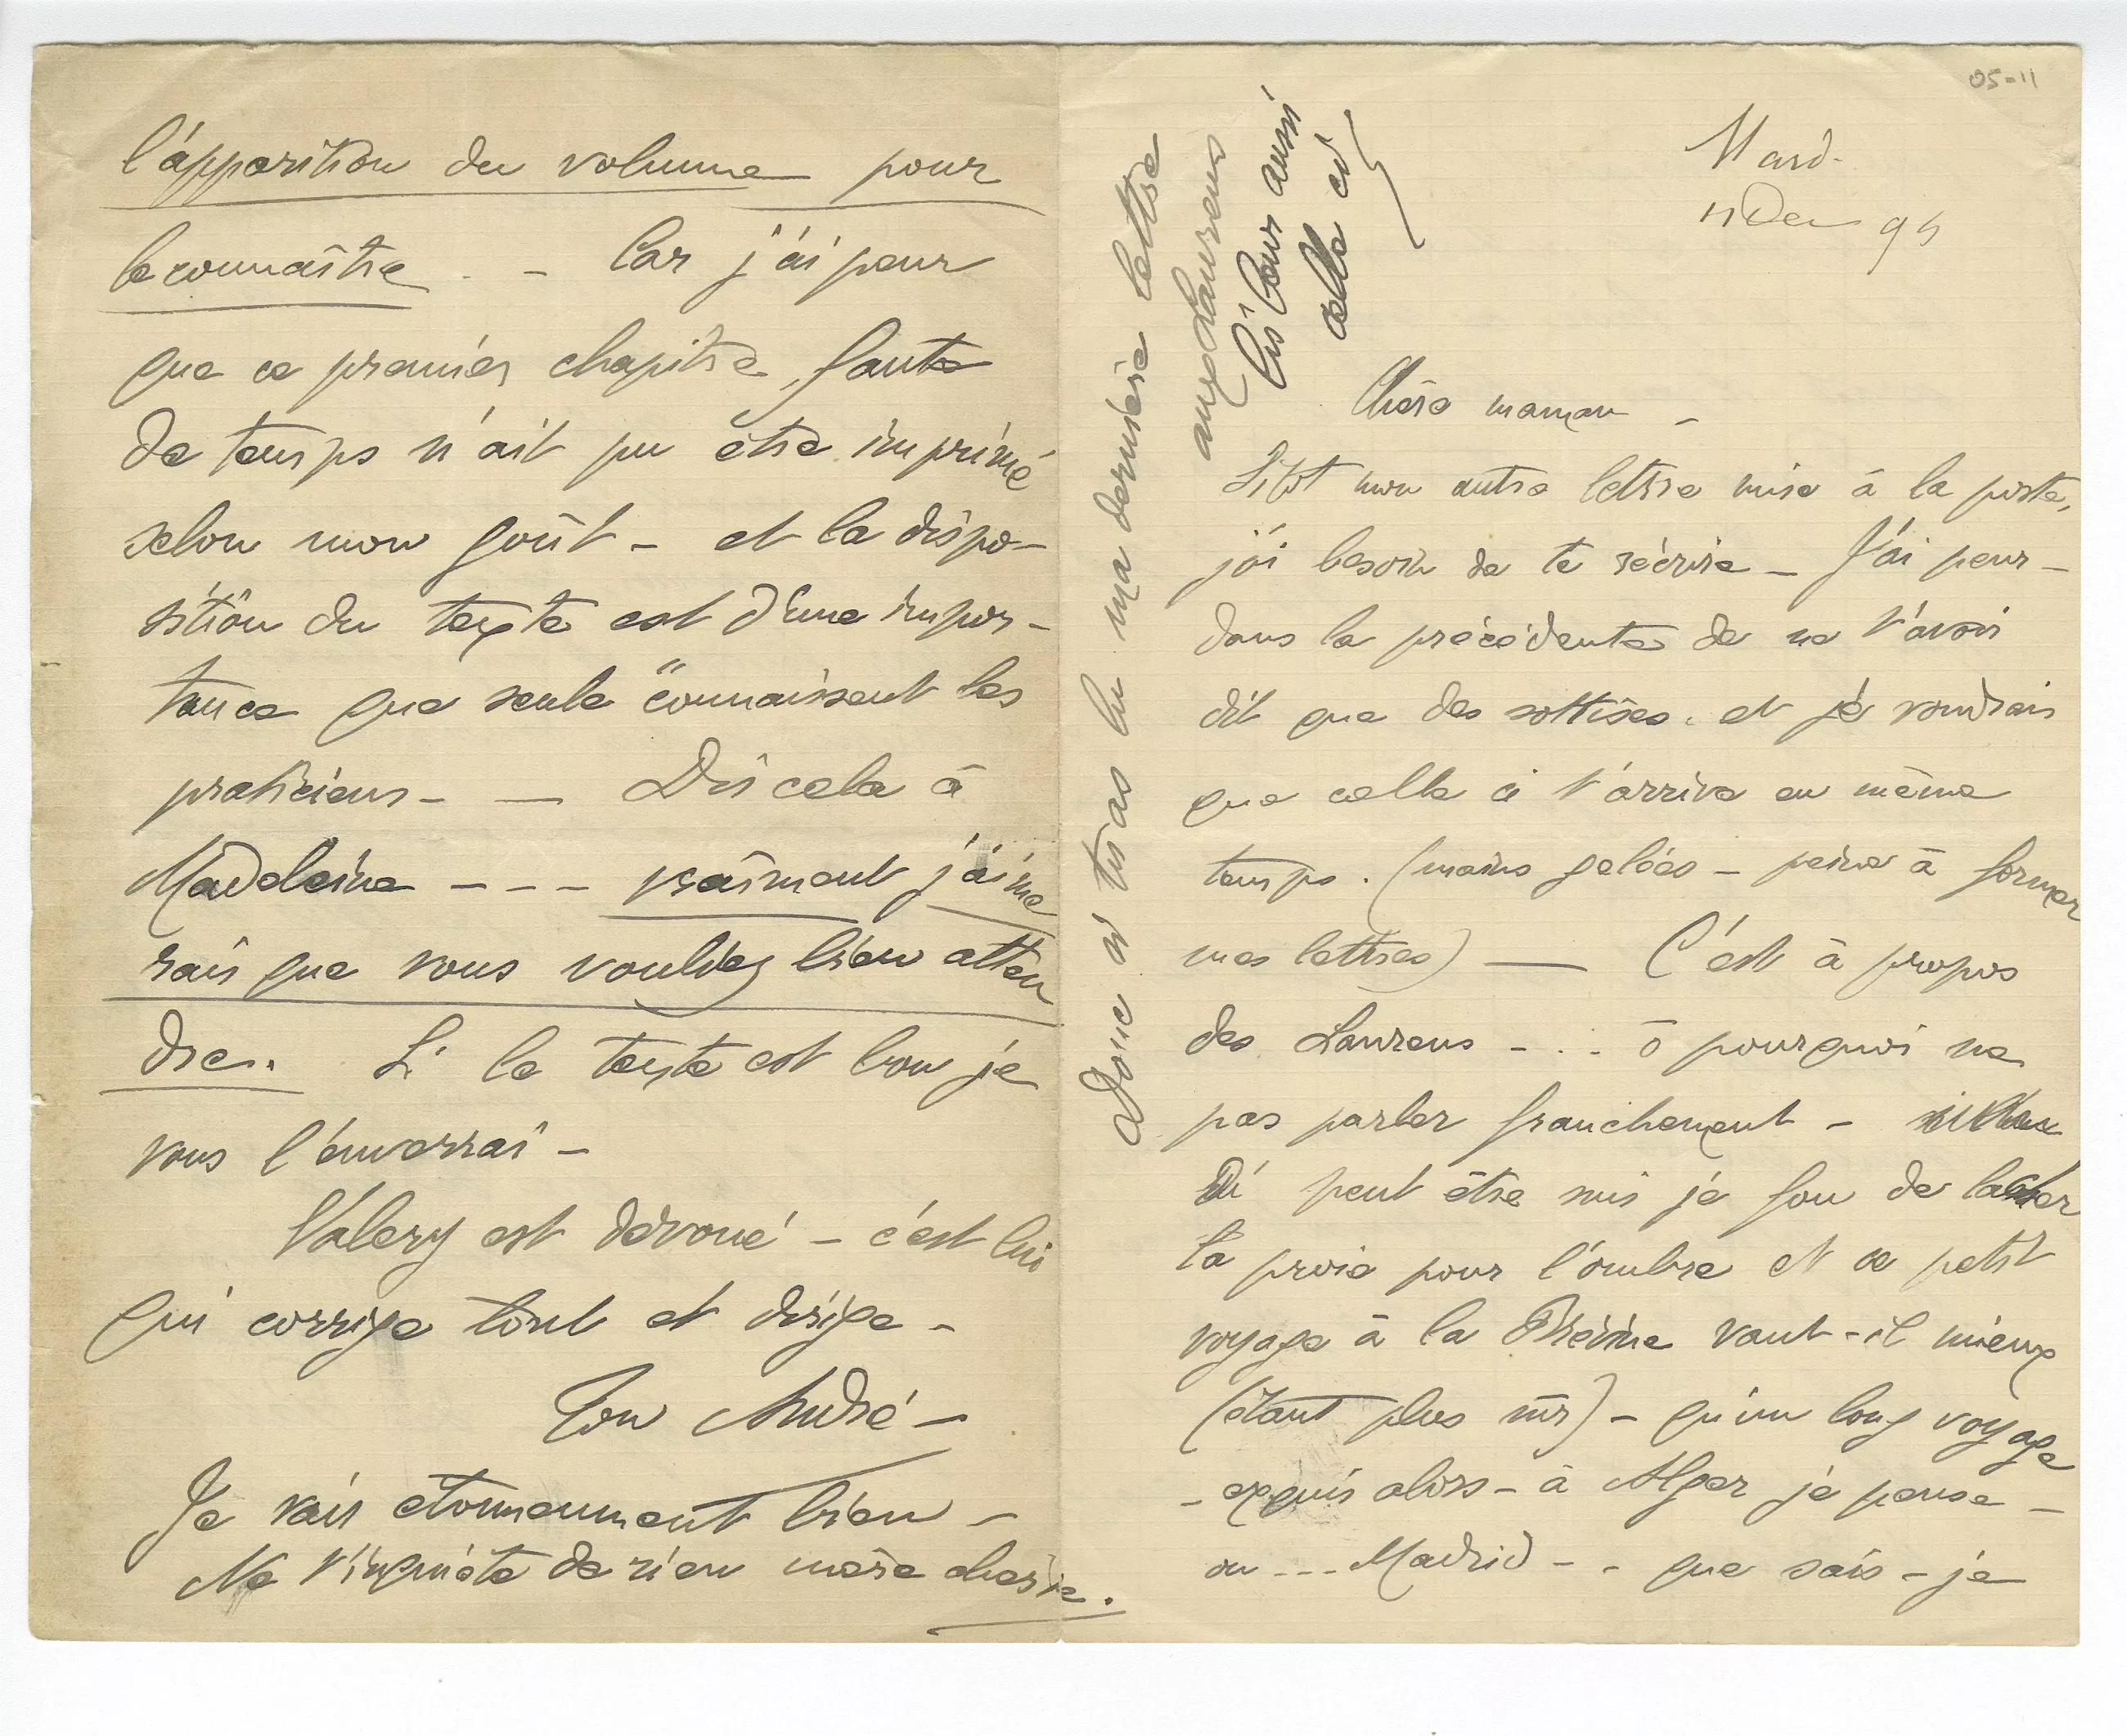 05-11
Mardi
11 Dec 94
Chère maman –
Sitôt mon autre lettre mise à la poste,
j'ai besoin de te réécrire – J'ai peur –
dans la précédente de ne t'avoir
dit que des sottises. et je voudrais
que celle ci t'arrive en même
temps. (mains gelées – peine à former
mes lettres) — C'est à propos
des Laurens - . . - ô pourquoi ne
pas parler franchement –
peut être suis je fou de lâcher
la proie pour l'ombre et ce petit
voyage à la Brévine vaut-il mieux
(étant plus sûr) – qu'un long voyage
– exquis alors – à Alger je pense –
ou --- Madrid - - que sais-je
Donc si tu as lu ma dernière lettre
aux Laurens
lis leur aussi
celle ci
l'apparition du volume pour
le connaître . - Car j'ai peur
que ce premier chapitre, faute
de temps n'ait pu être imprimé
selon mon goût – et la dispo-
sition du texte est d'une impor-
tance que seule "connaissent les
praticiens - — Dis cela à
Madeleine - - - vraiment j'aime
rais que vous vouliez bien atten
dre. Si le texte est bon je
vous l'enverrai –
Valery est dévoué – c'est lui
qui corrige tout et dirige –
Ton André –
Je vais étonnamment bien –
Ne t'inquiète de rien mère chérie.